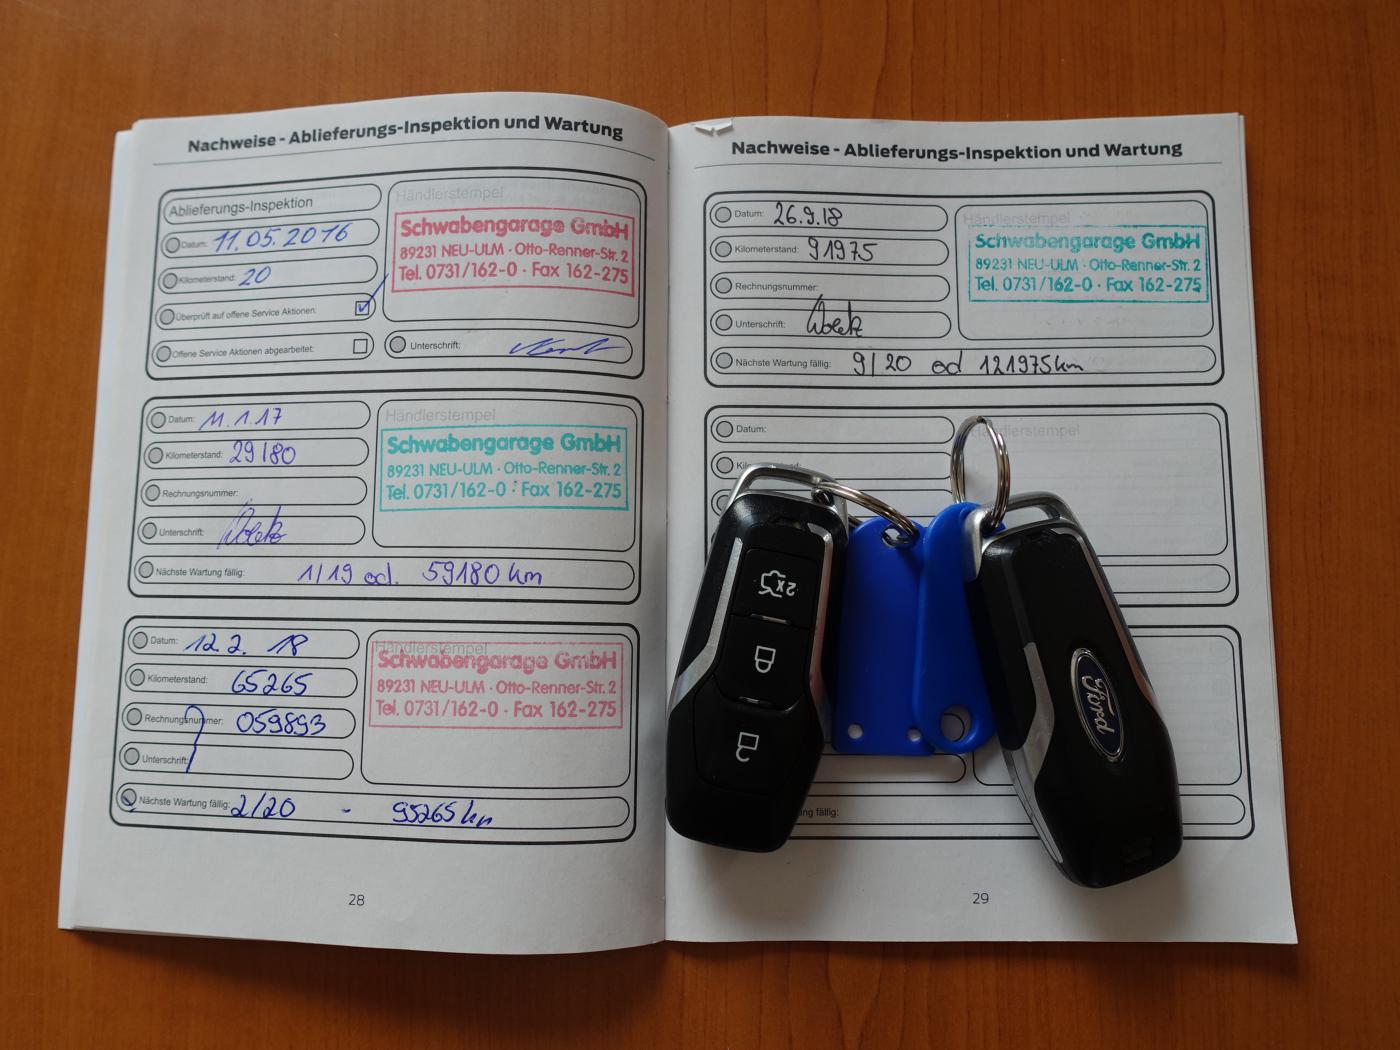 Nachweise - Ablieferungs-Inspektion und Wartung
Ablieferungs-Inspektion
Datum: 11.05.2016
Kilometerstand: 20
Überprüft auf offene Service Aktionen:
Offene Service Aktionen abgearbeitet:
Händlerstempel
Schwabengarage GmbH
89231 NEU-ULM · Otto-Renner-Str. 2
Tel. 0731/162-0 · Fax 162-275
Unterschrift:
Datum: 11.1.17
Kilometerstand: 29180
Rechnungsnummer:
Unterschrift:
Händlerstempel
Schwabengarage GmbH
89231 NEU-ULM · Otto-Renner-Str. 2
Tel. 0731/162-0 · Fax 162-275
Nächste Wartung fällig: 1/19 od. 59180 km
Datum: 12.2. 18
Kilometerstand: 65265
Rechnungsnummer: 059893
Unterschrift:
Händlerstempel
Schwabengarage GmbH
89231 NEU-ULM · Otto-Renner-Str. 2
Tel. 0731/162-0 · Fax 162-275
Nächste Wartung fällig: 2/20 - 95265 km
28
Nachweise - Ablieferungs-Inspektion und Wartung
Datum: 26.9.18
Kilometerstand: 91975
Rechnungsnummer:
Unterschrift:
Händlerstempel
Schwabengarage GmbH
89231 NEU-ULM · Otto-Renner-Str. 2
Tel. 0731/162-0 · Fax 162-275
Nächste Wartung fällig: 9/20 od 121975 km
Datum:
Händlerstempel
2x
Ford
fällig:
29